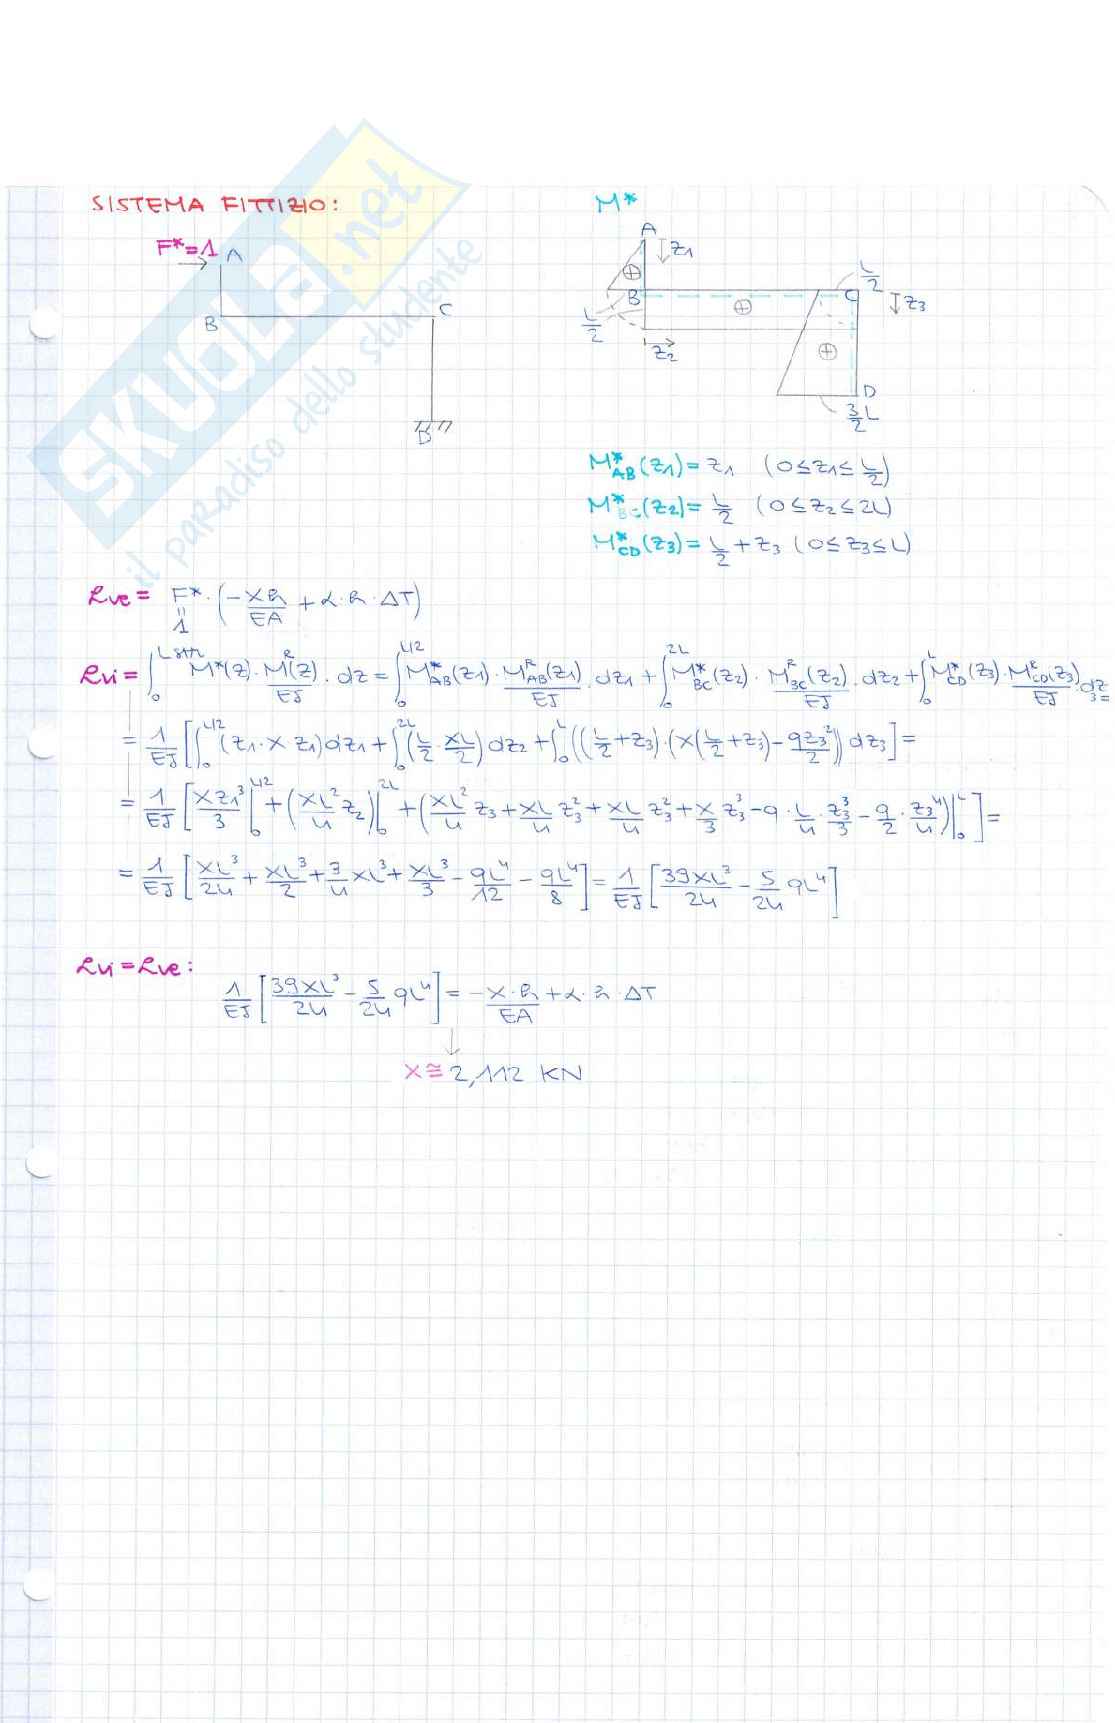 SISTEMA FITTIZIO:
F*=1 A
B
C
D
M*
A
z1
B
L/2
z2
L/2
C
z3
D
3/2 L
M*AB(z1) = z1 (0≤z1≤L/2)
M*BC(z2) = L/2 (0≤z2≤2L)
M*CD(z3) = L/2 + z3 (0≤z3≤L)
Lve = F*·(-Xh/EA + α·h·ΔT)
"
1
Lvi = ∫₀^(L str) M*(z)·M^R(z)/EJ · dz = ∫₀^(L/2) M*AB(z1)·M^R AB(z1)/EJ · dz1 + ∫₀^(2L) M*BC(z2)·M^R BC(z2)/EJ · dz2 + ∫₀^L M*CD(z3)·M^R CD(z3)/EJ · dz3 =
= 1/EJ [∫₀^(L/2) (z1·X z1) dz1 + ∫₀^(2L) (L/2·XL/2) dz2 + ∫₀^L ((L/2+z3)·(X(L/2+z3) - qz3²/2)) dz3] =
= 1/EJ [Xz1³/3 |₀^(L/2) + (XL²/4 z2)|₀^(2L) + (XL²/4 z3 + XL/4 z3² + XL/4 z3² + X/3 z3³ - q·L/4·z3³/3 - q/2·z3⁴/4)|₀^L] =
= 1/EJ [XL³/24 + XL³/2 + 3/4 XL³ + XL³/3 - qL⁴/12 - qL⁴/8] = 1/EJ [39XL³/24 - 5/24 qL⁴]
Lvi = Lve:
1/EJ [39XL³/24 - 5/24 qL⁴] = -X·h/EA + α·h·ΔT
X ≅ 2,112 KN
SKUOLA.net
il paradiso dello studente